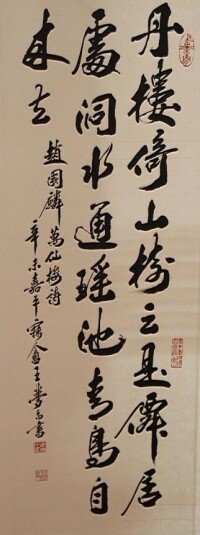 丹樓倚山樹云是僊居
處澗水通瑤池青鳥自
來去
趙國麟萬仙樓詩
辛未嘉平